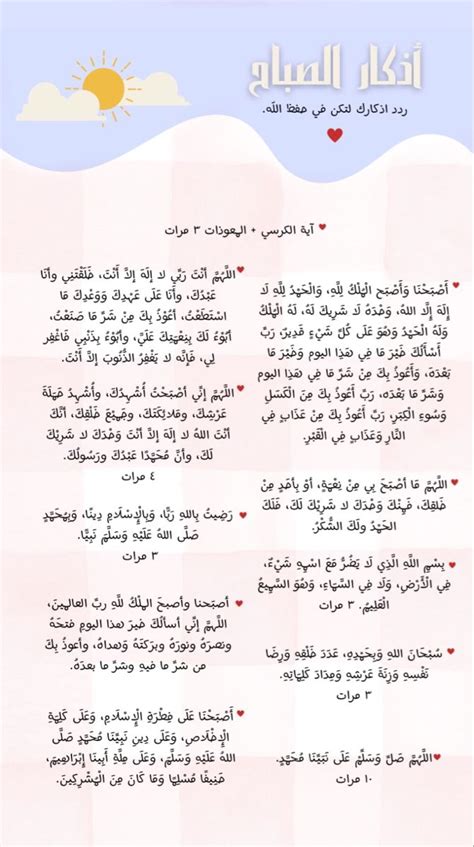 أذكار الصباح
ردد اذكارك لتكن في حفظ الله.
آية الكرسي + المعوذات ٣ مرات
أَصْبَحْنَا وَأَصْبَح الْمُلْكُ لِلَّهِ، وَالْحَمْدُ لِلَّهِ لَا
إِلَهَ إِلَّا اللهُ، وَحْدَهُ لَا شَرِيكَ لَهُ، لَهُ الْمُلْكُ
وَلَهُ الْحَمْدُ وَهُوَ عَلَى كُلِّ شَيْءٍ قَدِيرٌ، رَبِّ
أَسْأَلُكَ خَيْرَ مَا فِي هَذَا اليوم وَخَيْرَ مَا
بَعْدَهُ، وَأَعُوذُ بِكَ مِنْ شَرِّ مَا فِي هَذَا اليوم
وَشَرِّ مَا بَعْدَهُ، رَبِّ أَعُوذُ بِكَ مِنَ الْكَسَلِ
وَسُوءِ الْكِبَرِ، رَبِّ أَعُوذُ بِكَ مِنْ عَذَابٍ فِي
النَّارِ وَعَذَابٍ فِي الْقَبْرِ.
اللَّهُمَّ مَا أَصْبَحَ بِي مِنْ نِعْمَةٍ، أَو بِأَحَدٍ مِنْ
خَلقِكَ، فَمِنْكَ وَحْدَكَ لا شَرِيكَ لَكَ، فَلَكَ
الحَمْدُ ولَكَ الشُّكْرُ.
بِسْمِ اللَّهِ الَّذِي لَا يَضُرُّ مَعَ اسْمِهِ شَيْءٌ،
فِي الْأَرْضِ، وَلَا فِي السَّمَاءِ، وَهُوَ السَّمِيعُ
الْعَلِيمُ. ٣ مرات
سُبْحَانَ اللهِ وَبِحَمْدِهِ، عَدَدَ خَلْقِهِ وَرِضَا
نَفْسِهِ وَزِنَةَ عَرْشِهِ وَمِدَادَ كَلِمَاتِهِ.
٣ مرات
اللَّهُمَّ صَلِّ وَسَلِّمْ عَلَى نَبِيِّنَا مُحَمَّدٍ.
١٠ مرات
اللَّهُمَّ أَنْتَ رَبِّي لا إلَهَ إلاَّ أَنْتَ، خَلَقْتَنِي وأنَا
عَبْدُكَ، وأَنَا عَلَى عَهْدِكَ وَوَعْدِكَ مَا
اسْتَطَعْتُ، أَعُوذُ بِكَ مِنْ شَرِّ مَا صَنَعْتُ،
أبُوْءُ لَكَ بِنِعْمَتِكَ عَلَيَّ، وأبُوْءُ بِذَنْبِي فَاغْفِر
لِي، فَإِنَّه لا يَغْفِرُ الذُّنُوبَ إلَّا أَنْتَ.
اللَّهُمَّ إنِّي أصْبَحْتُ أُشْهِدُكَ، وأُشْهِدُ حَمَلَةَ
عَرْشِكَ، ومَلاَئِكَتَكَ، وجَمِيعَ خَلْقِكَ، أنَّكَ
أنْتَ اللهُ لا إلَهَ إلاَّ أنْتَ وَحْدَكَ لا شَرِيكَ
لَكَ، وأنَّ مُحَمَّدًا عَبْدُكَ ورَسُولُكَ.
٤ مرات
رَضِيتُ بِاللهِ رَبًّا، وَبِالْإِسْلَامِ دِينًا، وَبِمُحَمَّدٍ
صَلَّى اللهُ عَلَيْهِ وَسَلَّمَ نَبِيًّا.
٣ مرات
أصبَحنا وأصبحَ المُلْكُ للَّهِ ربِّ العالمينَ،
اللَّهمَّ إنِّي أسألُكَ خيرَ هذا اليومِ فتحَهُ
ونصرَهُ ونورَهُ وبرَكتَهُ وَهداهُ، وأعوذُ بِكَ
من شرِّ ما فيهِ وشرِّ ما بعدَهُ.
أَصْبَحْنَا عَلَى فِطْرَةِ الْإِسْلَامِ، وَعَلَى كَلِمَةِ
الْإِخْلَاصِ، وَعَلَى دِينِ نَبِيِّنَا مُحَمَّدٍ صَلَّى
اللهُ عَلَيْهِ وَسَلَّمَ، وَعَلَى مِلَّةِ أَبِينَا إِبْرَاهِيمَ،
حَنِيفًا مُسْلِمًا وَمَا كَانَ مِنَ الْمُشْرِكِينَ.